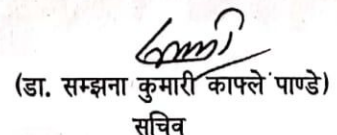 (डा. सम्झना कुमारी काफ्ले पाण्डे)
सचिव